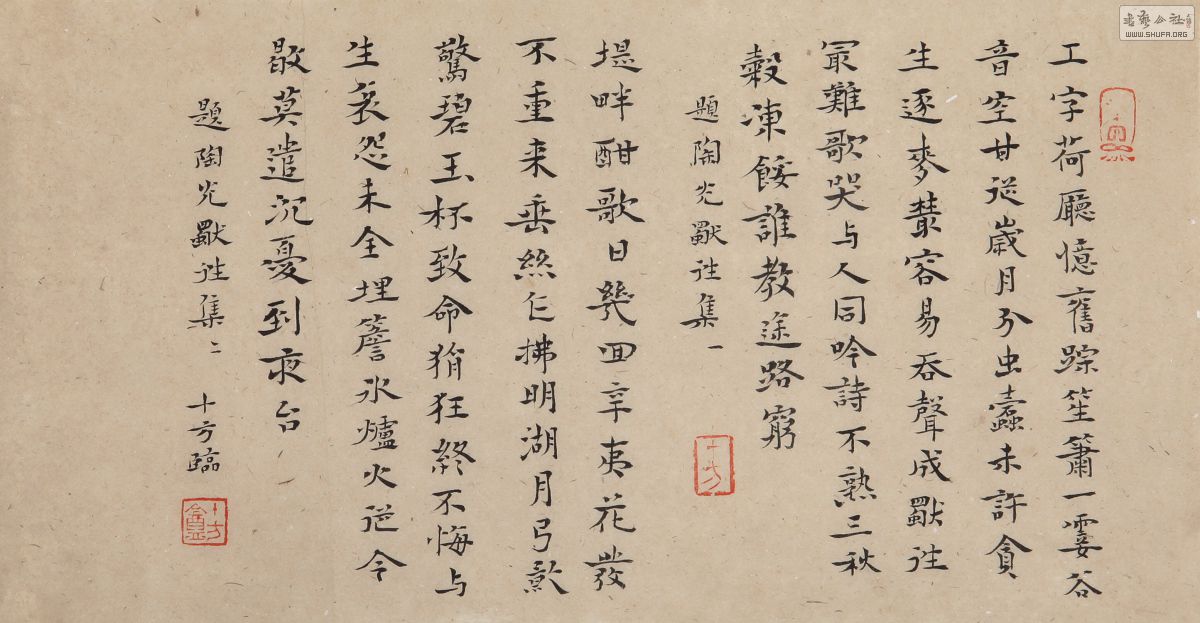 書藝公社
WWW.SHUFA.ORG
工字荷廳憶舊踪笙簫一霎谷
音空甘從歲月分虫蠹未許貪
生逐麥叢容易吞聲成獨往
最難歌哭与人同吟詩不熟三秋
穀凍餒誰教途路窮
題陶光獨往集一
十方
堤畔酣歌日幾回辛夷花發
不重来垂絲乍拂明湖月弓欻
驚碧玉杯致命狷狂終不悔与
生哀怨未全埋簷氷爐火從今
散莫遣沉憂到夜台
題陶光獨往集二 十方臨